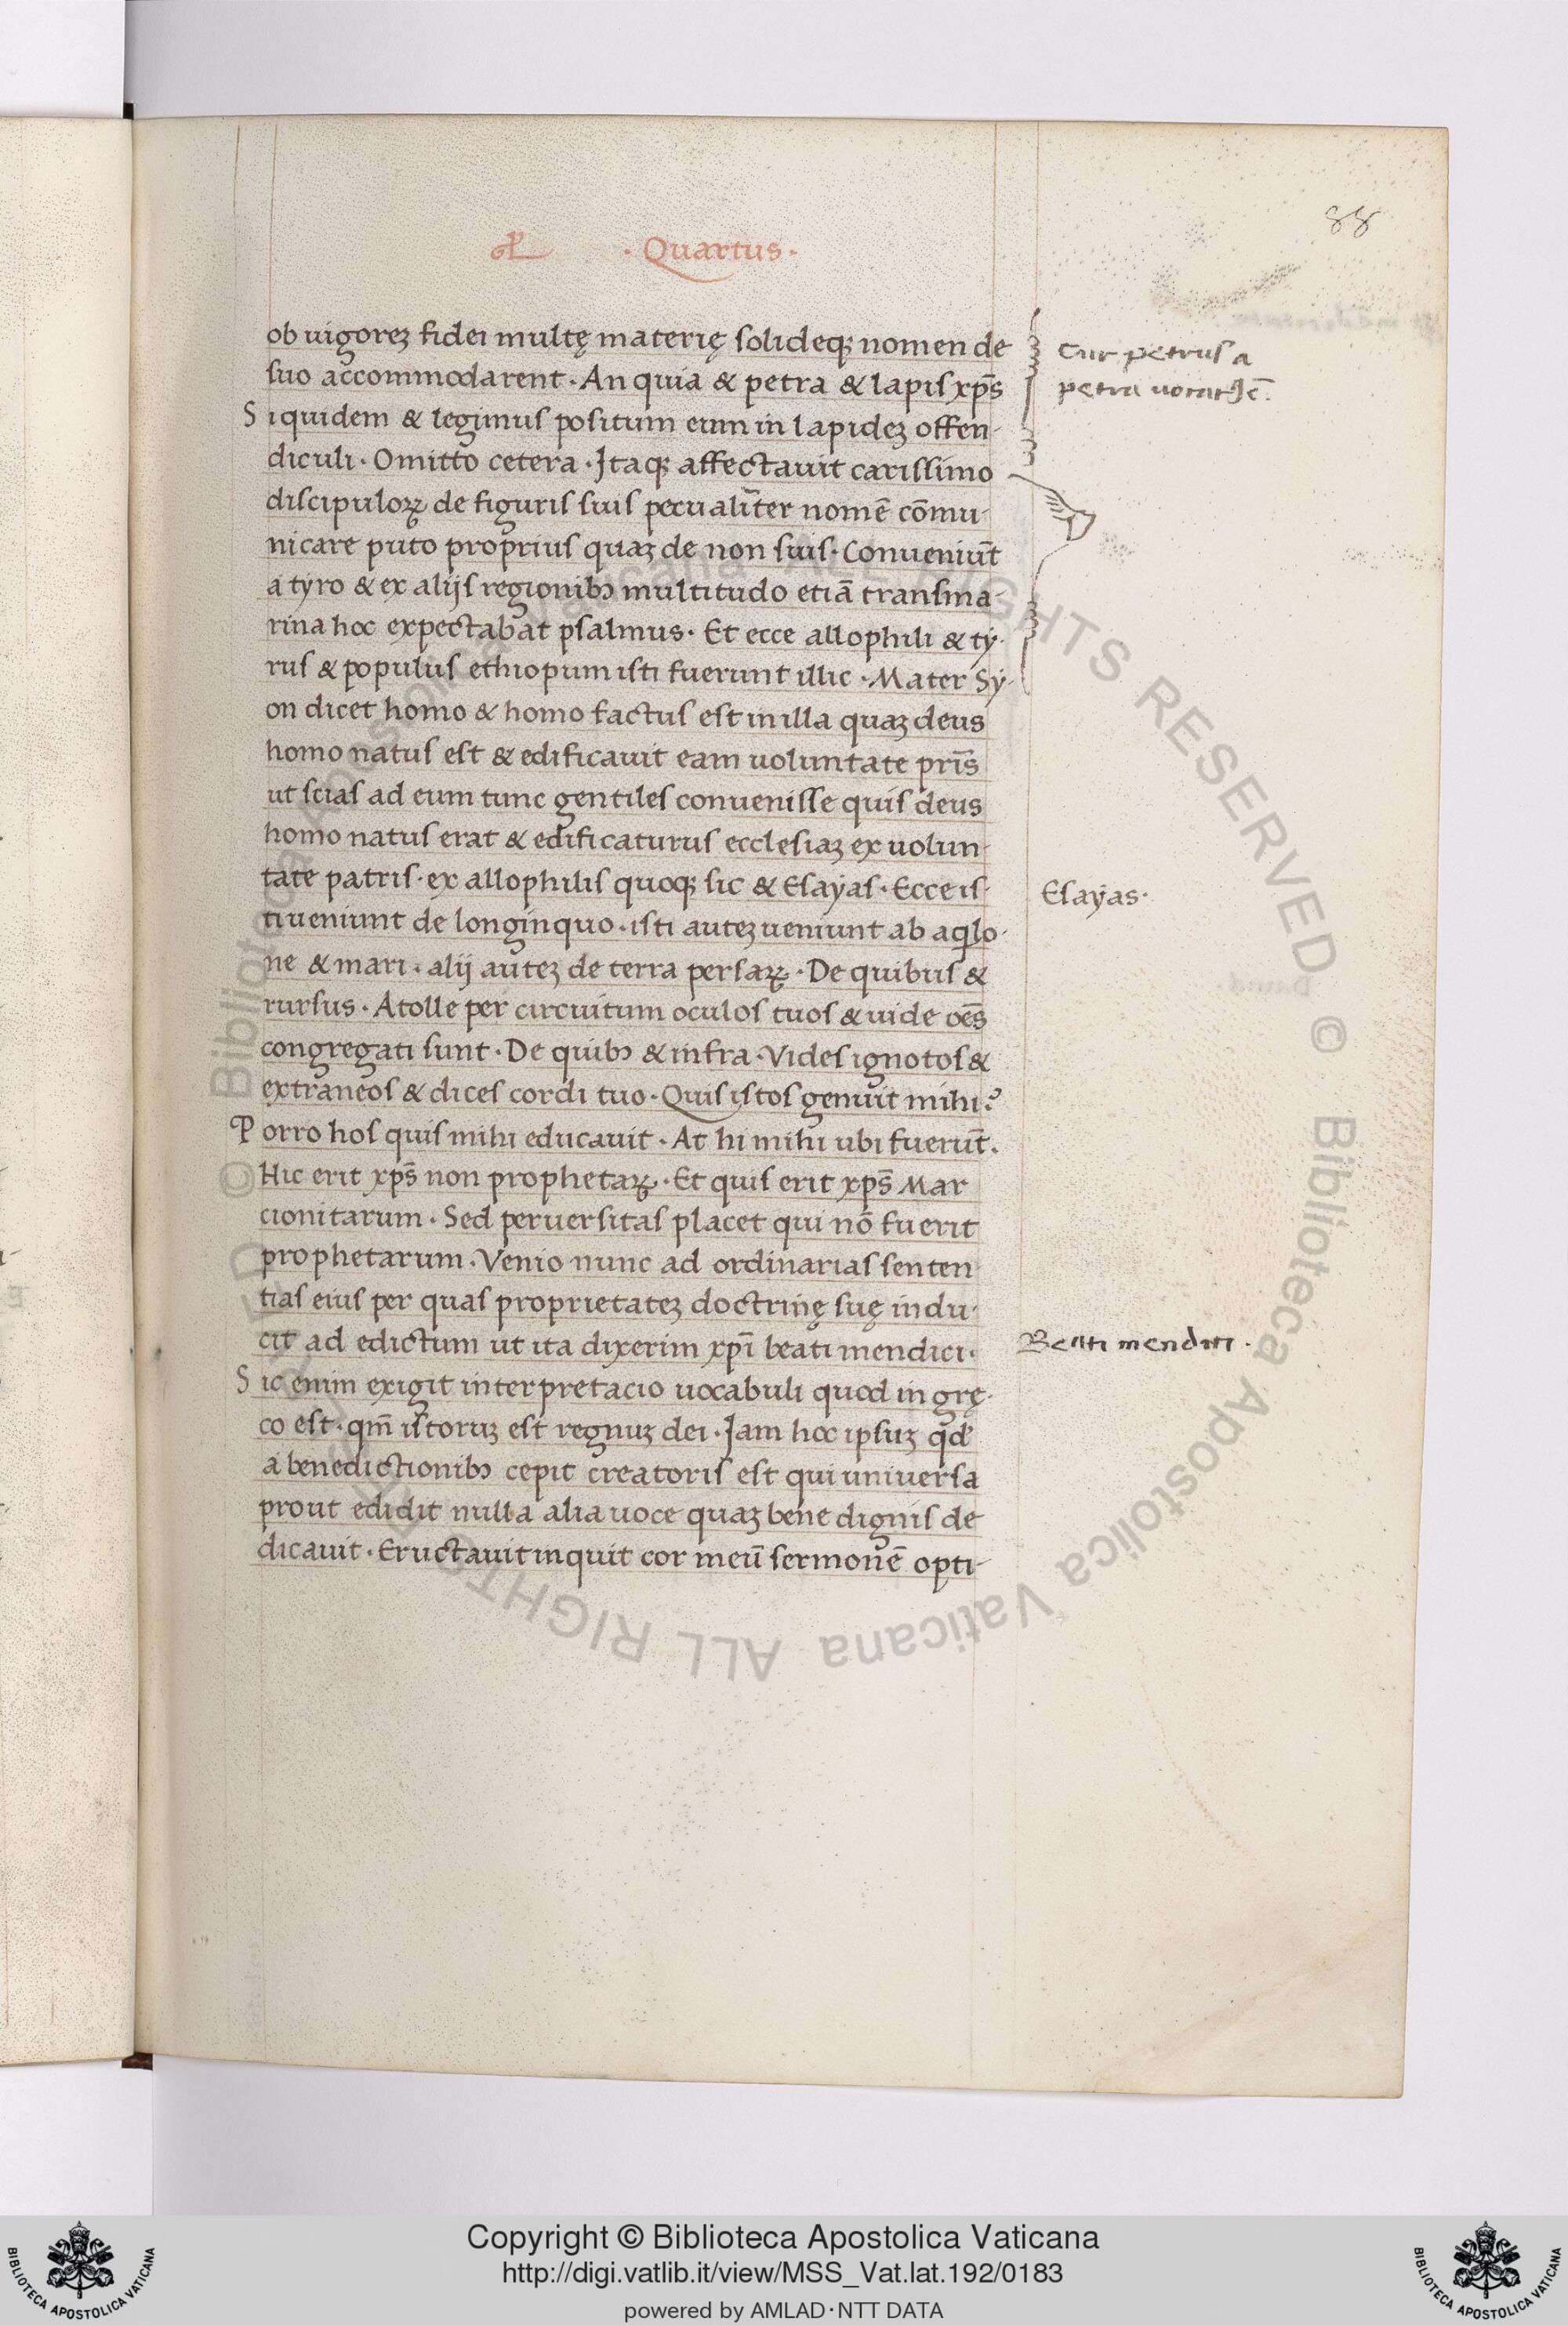 88
· Quartus ·
ob uigoreꝫ fidei multę materię solideqꝫ nomen de
suo accommodarent · An quia & petra & lapis xp̄s
Siquidem & legimus positum eum in lapideꝫ offen-
diculi · Omitto cetera · Itaqꝫ affectauit carissimo
discipuloꝝ de figuris suis peculiālr̄ter nomē cōmu-
nicare puto proprius quaꝫ de non suis · Conueniūt
a tyro & ex alijs regionibꝰ multitudo etiā transma-
rina hoc expectabat psalmus · Et ecce allophili & ty-
rus & populus ethiopum isti fuerunt illic · Mater Sy-
on dicet homo & homo factus est in illa quaꝫ deus
homo natus est & edificauit eam uoluntate pr̄is
ut scias ad eum tunc gentiles conuenisse quis deus
homo natus erat & edificaturus ecclesiaꝫ ex uolun-
tate patris · ex allophilis quoqꝫ sic & Esayas · Ecce is-
ti ueniunt de longinquo · isti auteꝫ ueniunt ab aqilo-
ne & mari · alij auteꝫ de terra persaꝝ · De quibus &
rursus · Atolle per circuitum oculos tuos & uide oēs
congregati sunt · De quibꝰ & infra · Vides ignotos &
extraneos & dices cordi tuo · Quis istos genuit mihi?
Porro hos quis mihi educauit · At hi mihi ubi fuerūt.
Hic erit xp̄s non prophetaꝝ · Et quis erit xp̄s Mar
cionitarum · Sed peruersitas placet qui nō fuerit
prophetarum · Venio nunc ad ordinarias senten
tias eius per quas proprietateꝫ doctrinę suę indu-
cit ad edictum ut ita dixerim xp̄i beati mendici ·
Sic enim exigit interpretacio uocabuli quod in grę-
co est · qm̄ istoruꝫ est regnuꝫ dei · Iam hoc ipsuꝫ qd
a benedictionibꝰ cepit creatoris est qui uniuersa
prout edidit nulla alia uoce quaꝫ bene dignis de
dicauit · Eructauit inquit cor meū sermonē opti-
Cur petrus a
petra uocat
Esayas ·
Beati mendici ·
© Biblioteca Apostolica Vaticana ALL RIGHTS RESERVED © Biblioteca Apostolica Vaticana ALL RIGHTS RESERVED
Copyright © Biblioteca Apostolica Vaticana
http://digi.vatlib.it/view/MSS_Vat.lat.192/0183
powered by AMLAD·NTT DATA
BIBLIOTECA APOSTOLICA VATICANA
BIBLIOTECA APOSTOLICA VATICANA